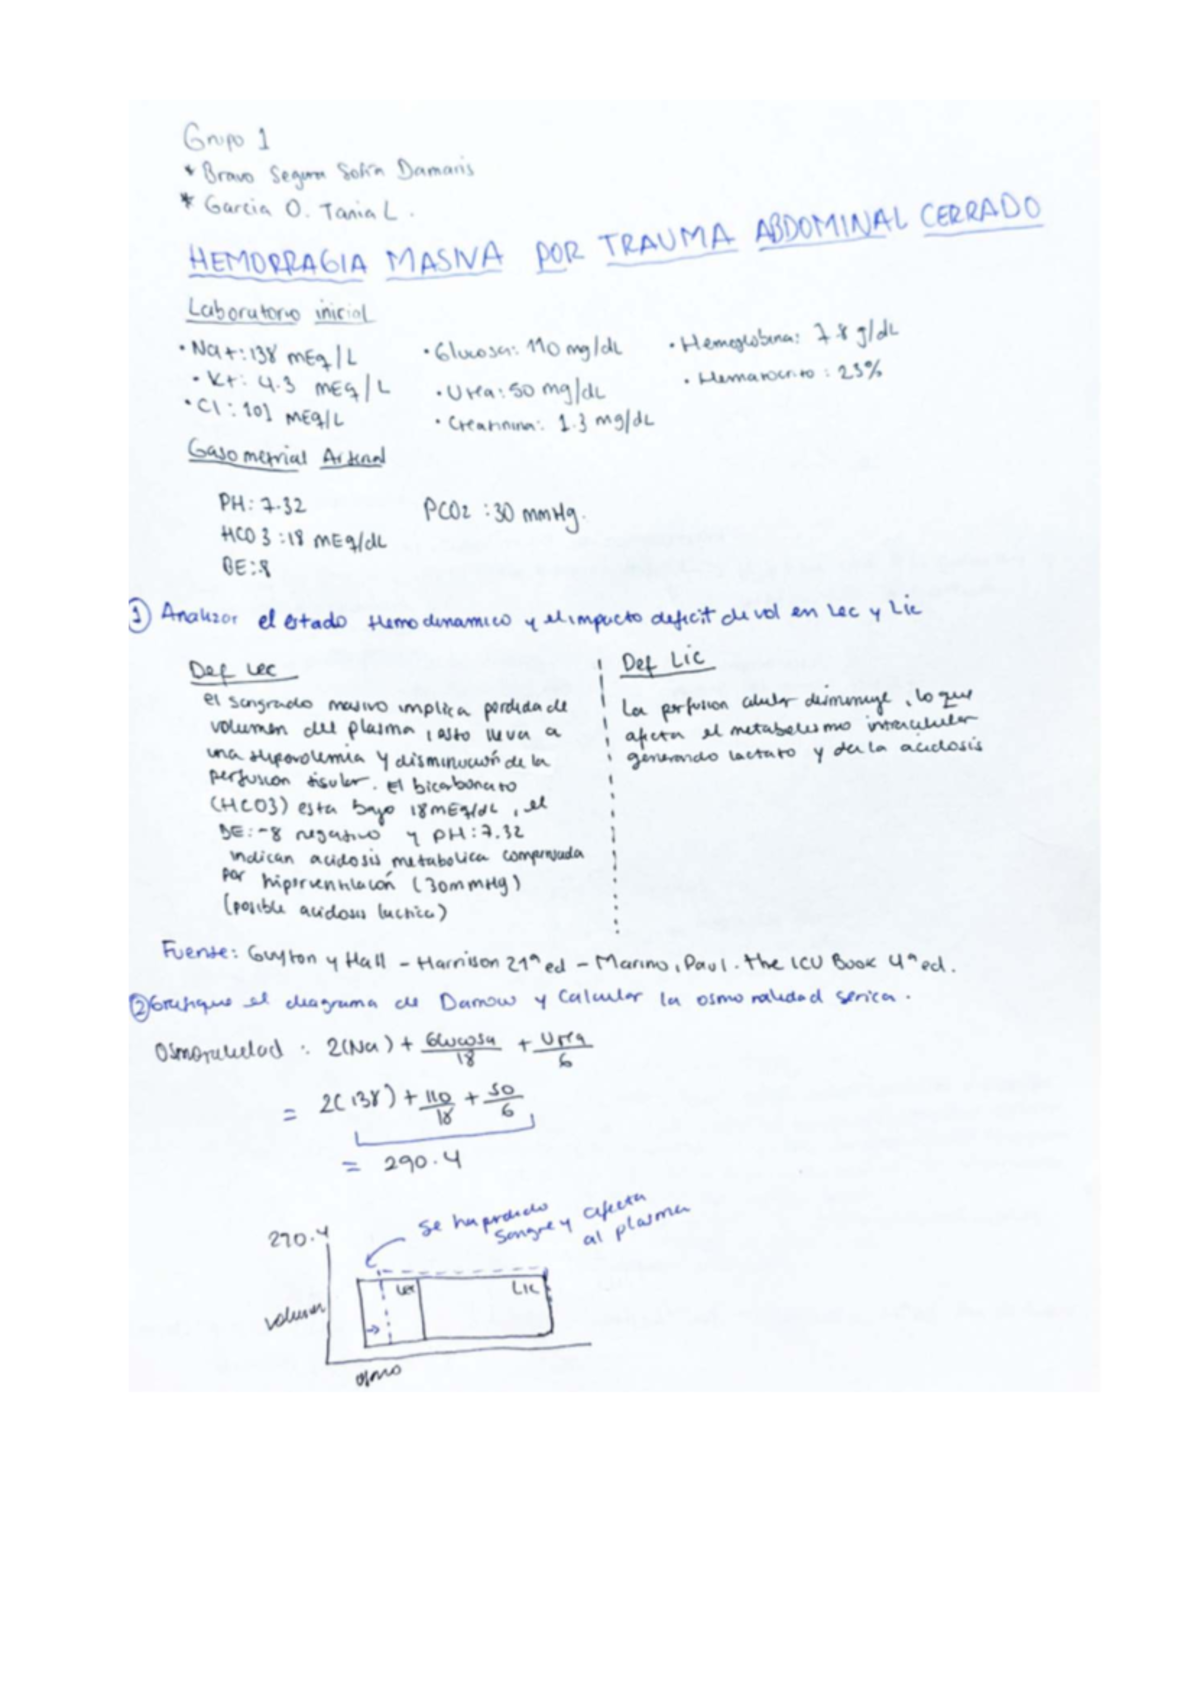 Grupo 1
* Bravo Segura Sofía Damaris
* Garcia O. Tania L.
HEMORRAGIA MASIVA POR TRAUMA ABDOMINAL CERRADO
Laboratorio inicial
• Na+: 138 mEq/L • Glucosa: 110 mg/dL • Hemoglobina: 7.8 g/dL
• K+: 4.3 mEq/L • Urea: 50 mg/dL • Hematocrito: 23%
• Cl: 101 mEq/L • Creatinina: 1.3 mg/dL
Gasometrial Arterial
PH: 7.32 PCO2: 30 mmHg.
HCO3: 18 mEq/dL
BE: 8
① Analizar el estado Hemodinamico y el impacto deficit de vol en Lec y Lic
Def Lec
el sangrado masivo implica perdida de
volumen del plasma, esto lleva a
una hipovolemia y disminución de la
perfusion tisular. El bicarbonato
(HCO3) esta bajo 18 mEq/dL, el
BE: -8 negativo y PH: 7.32
indican acidosis metabolica compensada
por hiperventilación (30mmHg)
(posible acidosis lactica)
Def Lic
La perfusion celular disminuye, lo que
afecta el metabolismo intracelular
generando lactato y de la acidosis
Fuente: Guyton y Hall - Harrison 21ª ed - Marino, Paul. The ICU Book 4ª ed.
② Grafique el diagrama de Darrow y Calcular la osmolalidad serica.
Osmolalidad: 2(Na) + Glucosa/18 + Urea/6
= 2(138) + 110/18 + 50/6
= 290.4
se ha perdido
sangre y afecta
al plasma
290.4
Lec LIC
volumen
osmo